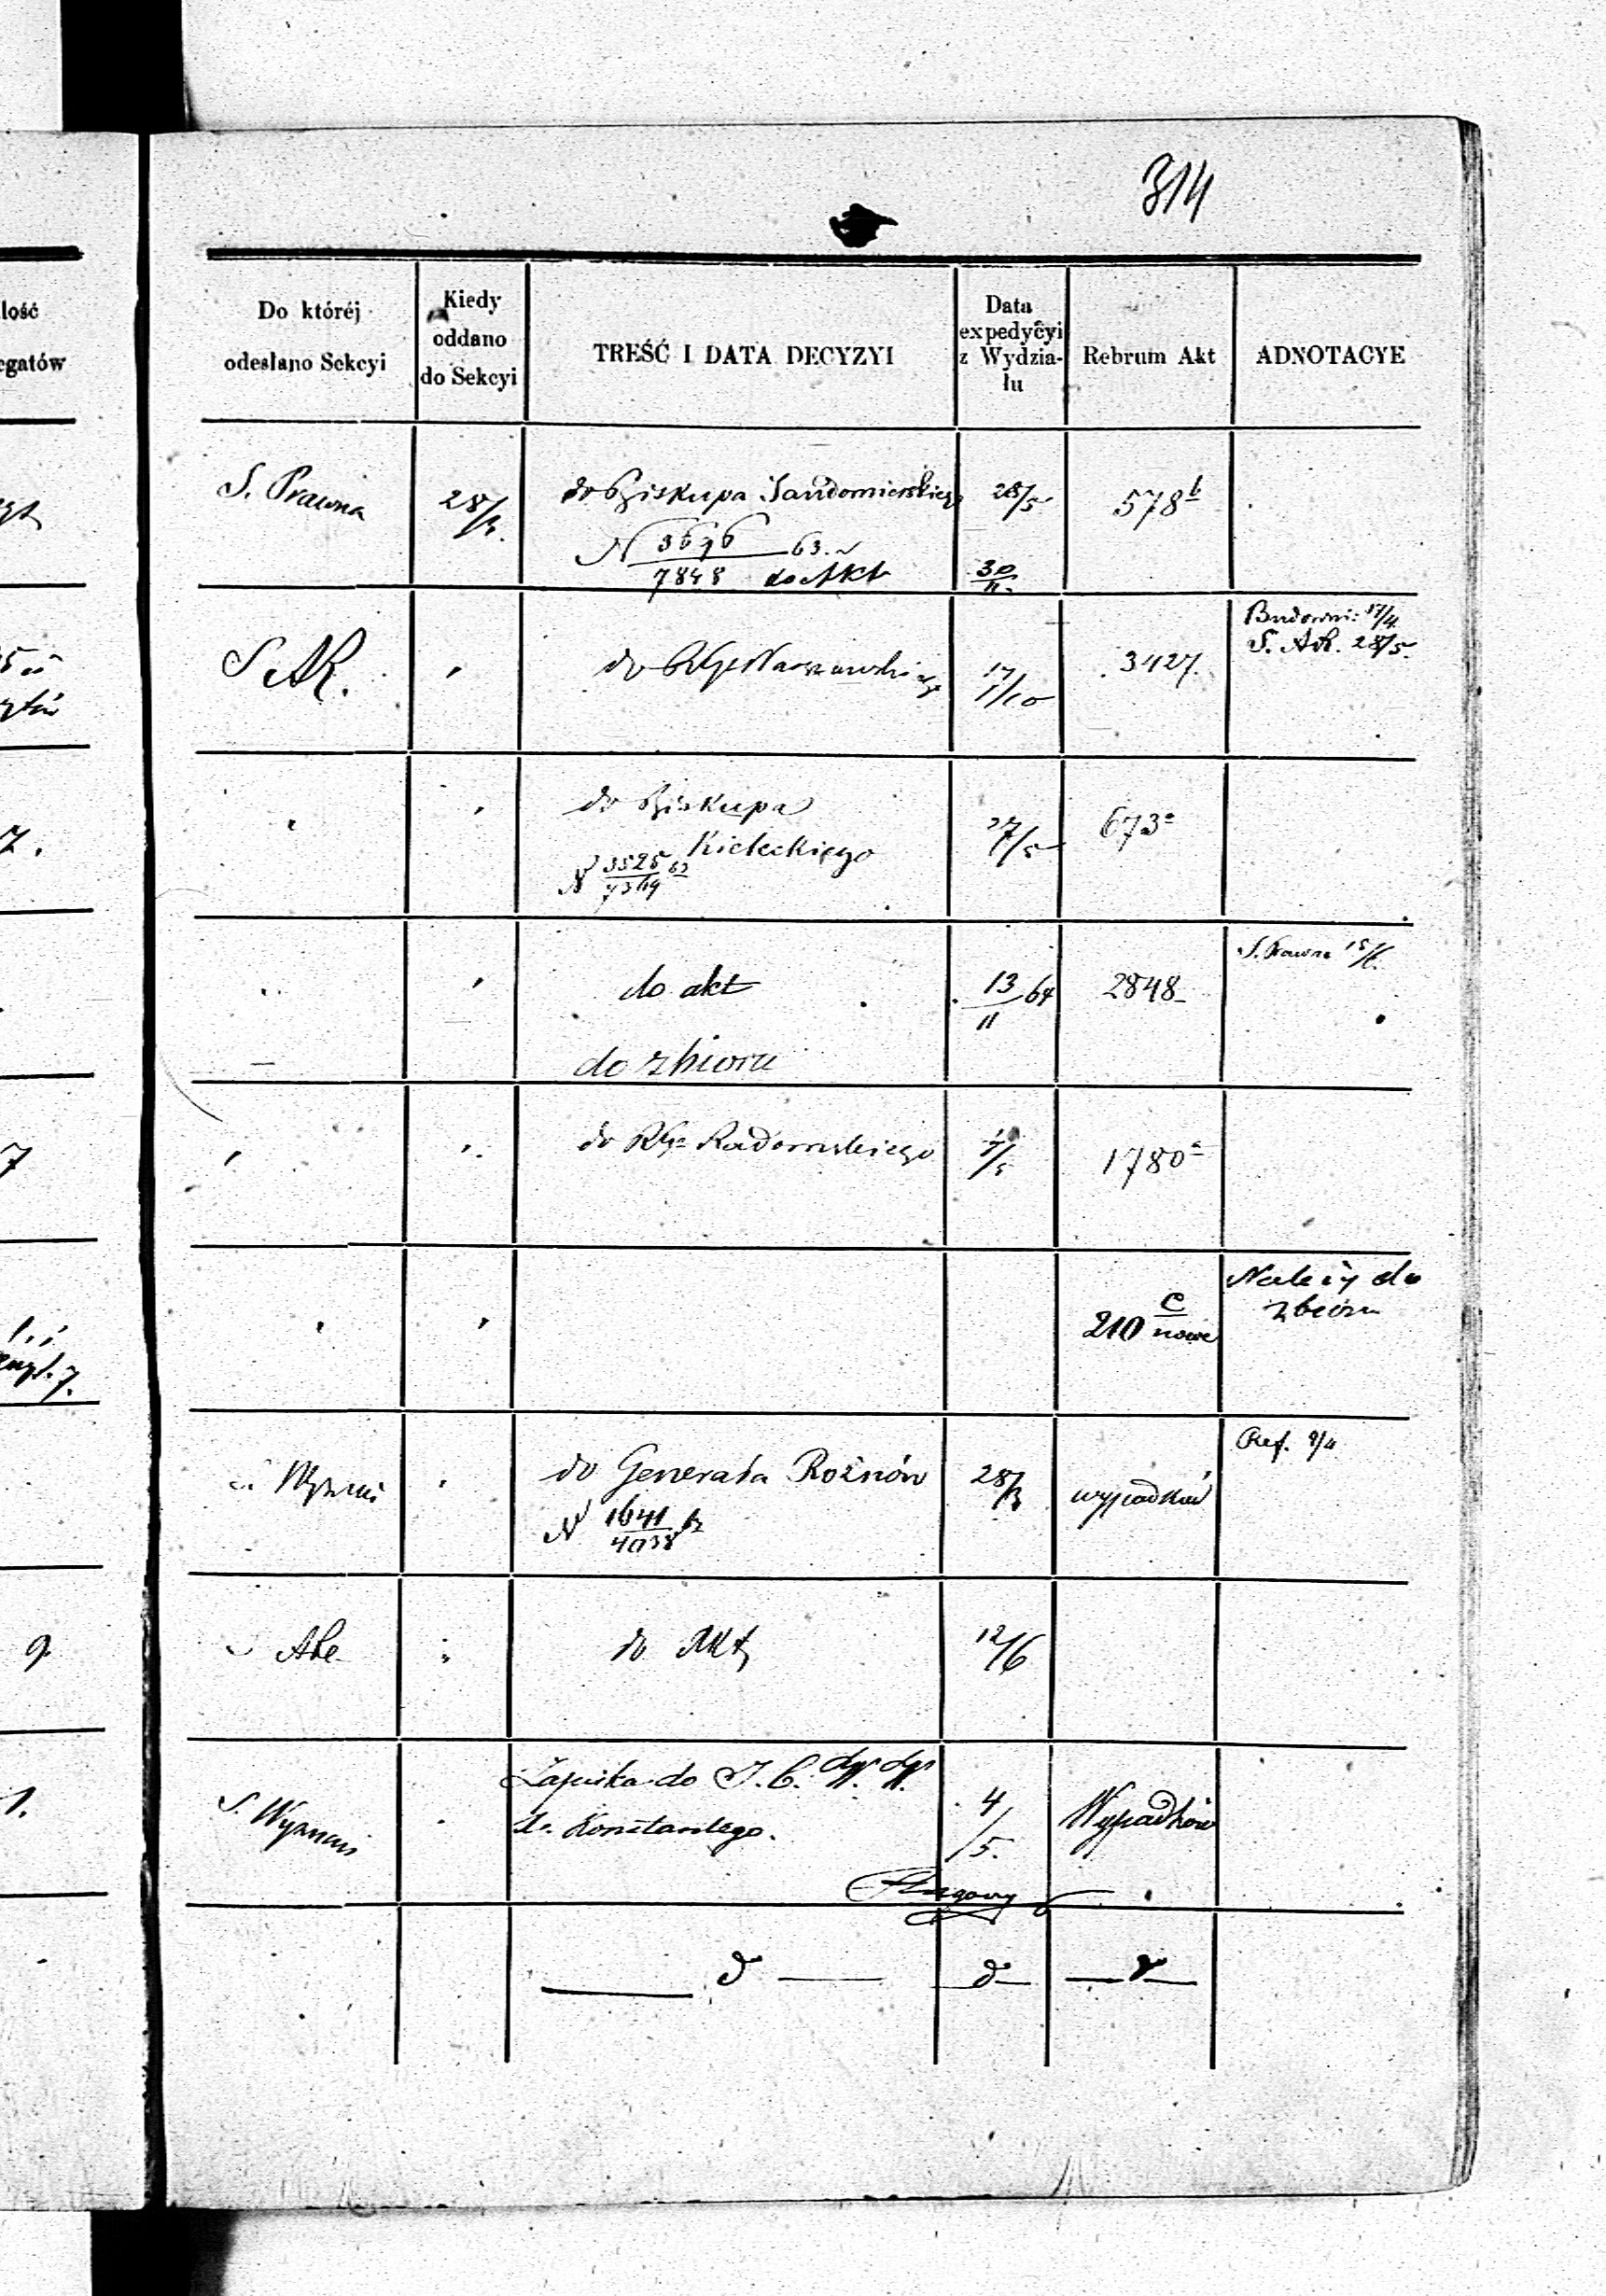 314
Do któréj
odesłano Sekcyi
Kiedy
oddano
do Sekcyi
TREŚĆ I DATA DECYZYI
Data
expedycyi
z Wydzia-
łu
Rebrum Akt
ADNOTACYE
S. Prawna
28/3.
do Biskupa Sandomierskiego
28/5
578 b
N 3696/7848 63.
do Akt
30/11.
S. AR.
do Warszawskiego
17/10
3427.
Budowni: 17/4
S. Adk. 28/5.
do Biskupa
Kieleckiego
N 3525/7369 63
27/5
673 a
do akt
13/11 64
2848
S. Prawna 15/6.
do zbioru
do Radomskiego
1780 a
210 c/nowe
Należy do
zbioru
do Generała Rożnów
N 1641/4038
28/3
wypadków
Ref. 9/4
do Akt
12/6
S. Wyznań
Zapiska do J. C.
Konstantego.
4/5.
Wypadków
d
d
d